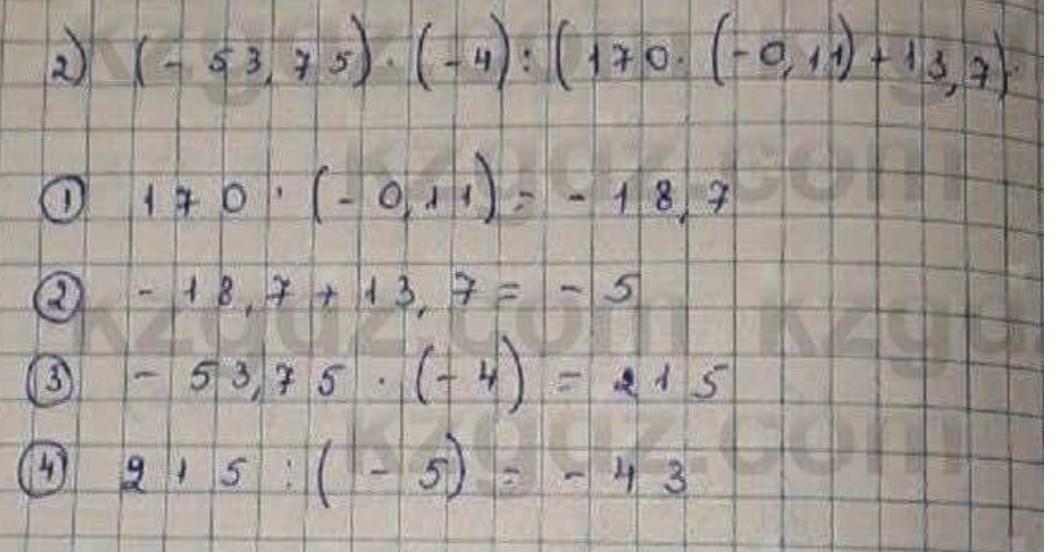 2) (-53,75)·(-4):(170·(-0,11)+13,7)
① 170·(-0,11)=-18,7
② -18,7+13,7=-5
③ -53,75·(-4)=215
④ 215:(-5)=-43
kzgdz.com